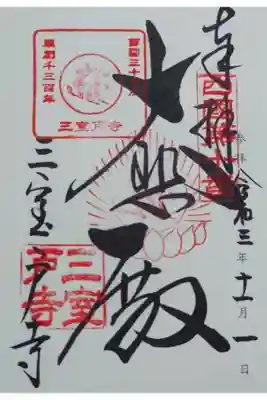 奉拝
西国十番
令和三年十一月一日
大悲殿
三室戸寺
西国三十三所
草創千三百年
三室戸寺
三室戸寺